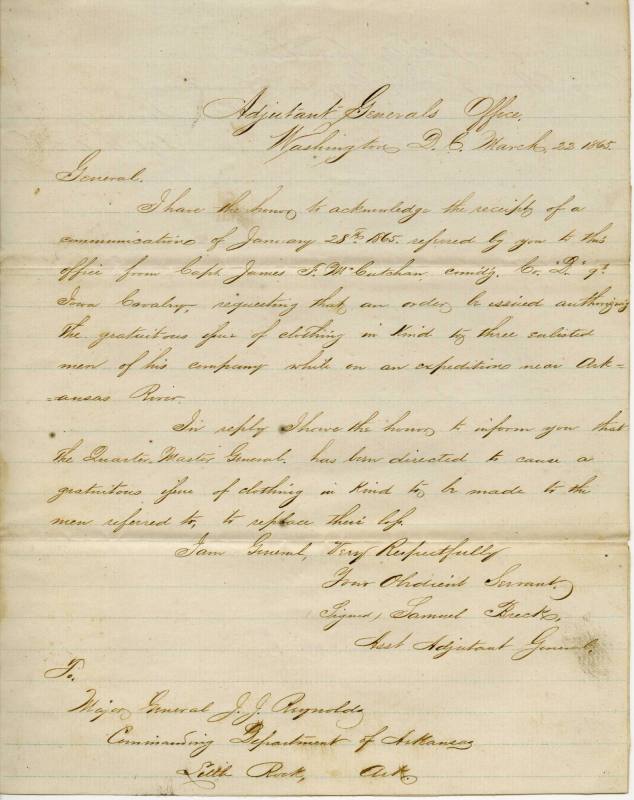 Adjutant Generals Office,
Washington D. C. March 22 1865.
General.
I have the honor to acknowledge the receipt of a
communication of January 28th 1865. referred by you to this
office from Capt. James F. McCutchan. comdg. Co. "D." 9th
Iowa Cavalry, requesting that an order be issued authorizing
the gratuitous issue of clothing in kind to three enlisted
men of his company while on an expedition near Ark=
=ansas River.
In reply I have the honor to inform you that
the Quarter Master General. has been directed to cause a
gratuitous issue of clothing in kind to be made to the
men referred to, to replace their loss.
I am General, Very Respectfully
Your Obedient Servant.
Signed, Samuel Breck,
Asst Adjutant General.
To.
Major General J. J. Reynolds
Commanding Department of Arkansas
Little Rock, Ark.